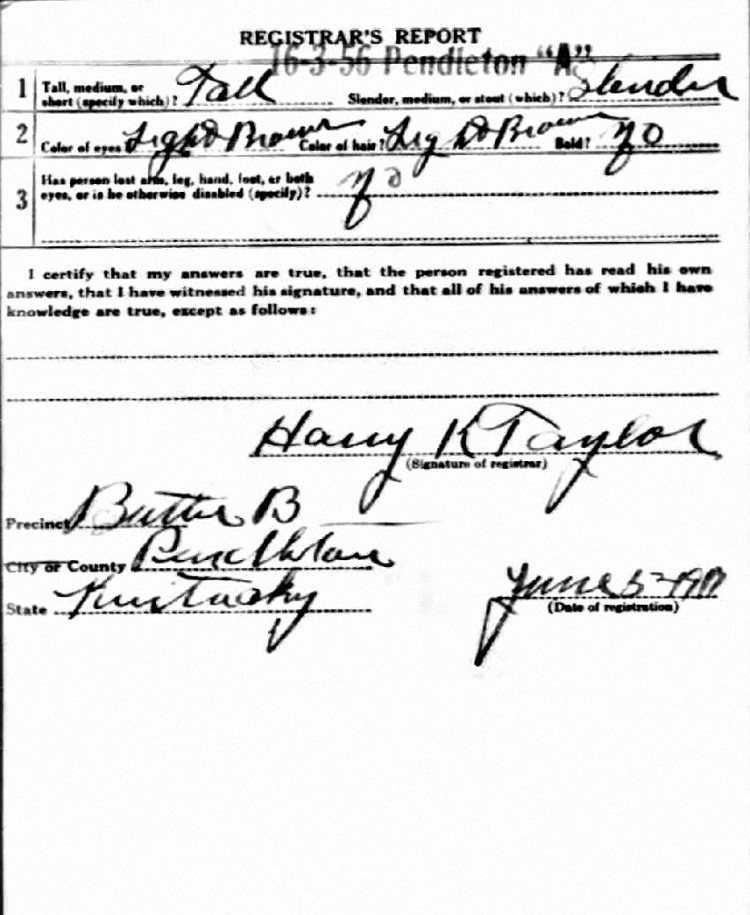 REGISTRAR'S REPORT
16-3-56 Pendleton "A"
1 Tall, medium, or short (specify which)? Tall Slender, medium, or stout (which)? Slender
2 Color of eyes Light Brown Color of hair? Light Brown Bald? No
3 Has person lost arm, leg, hand, foot, or both
eyes, or is he otherwise disabled (specify)? No
I certify that my answers are true, that the person registered has read his own
answers, that I have witnessed his signature, and that all of his answers of which I have
knowledge are true, except as follows:
Harry K Taylor
(Signature of registrar)
Precinct Butler B
City or County Pendleton
State Kentucky June 5-1917
(Date of registration)